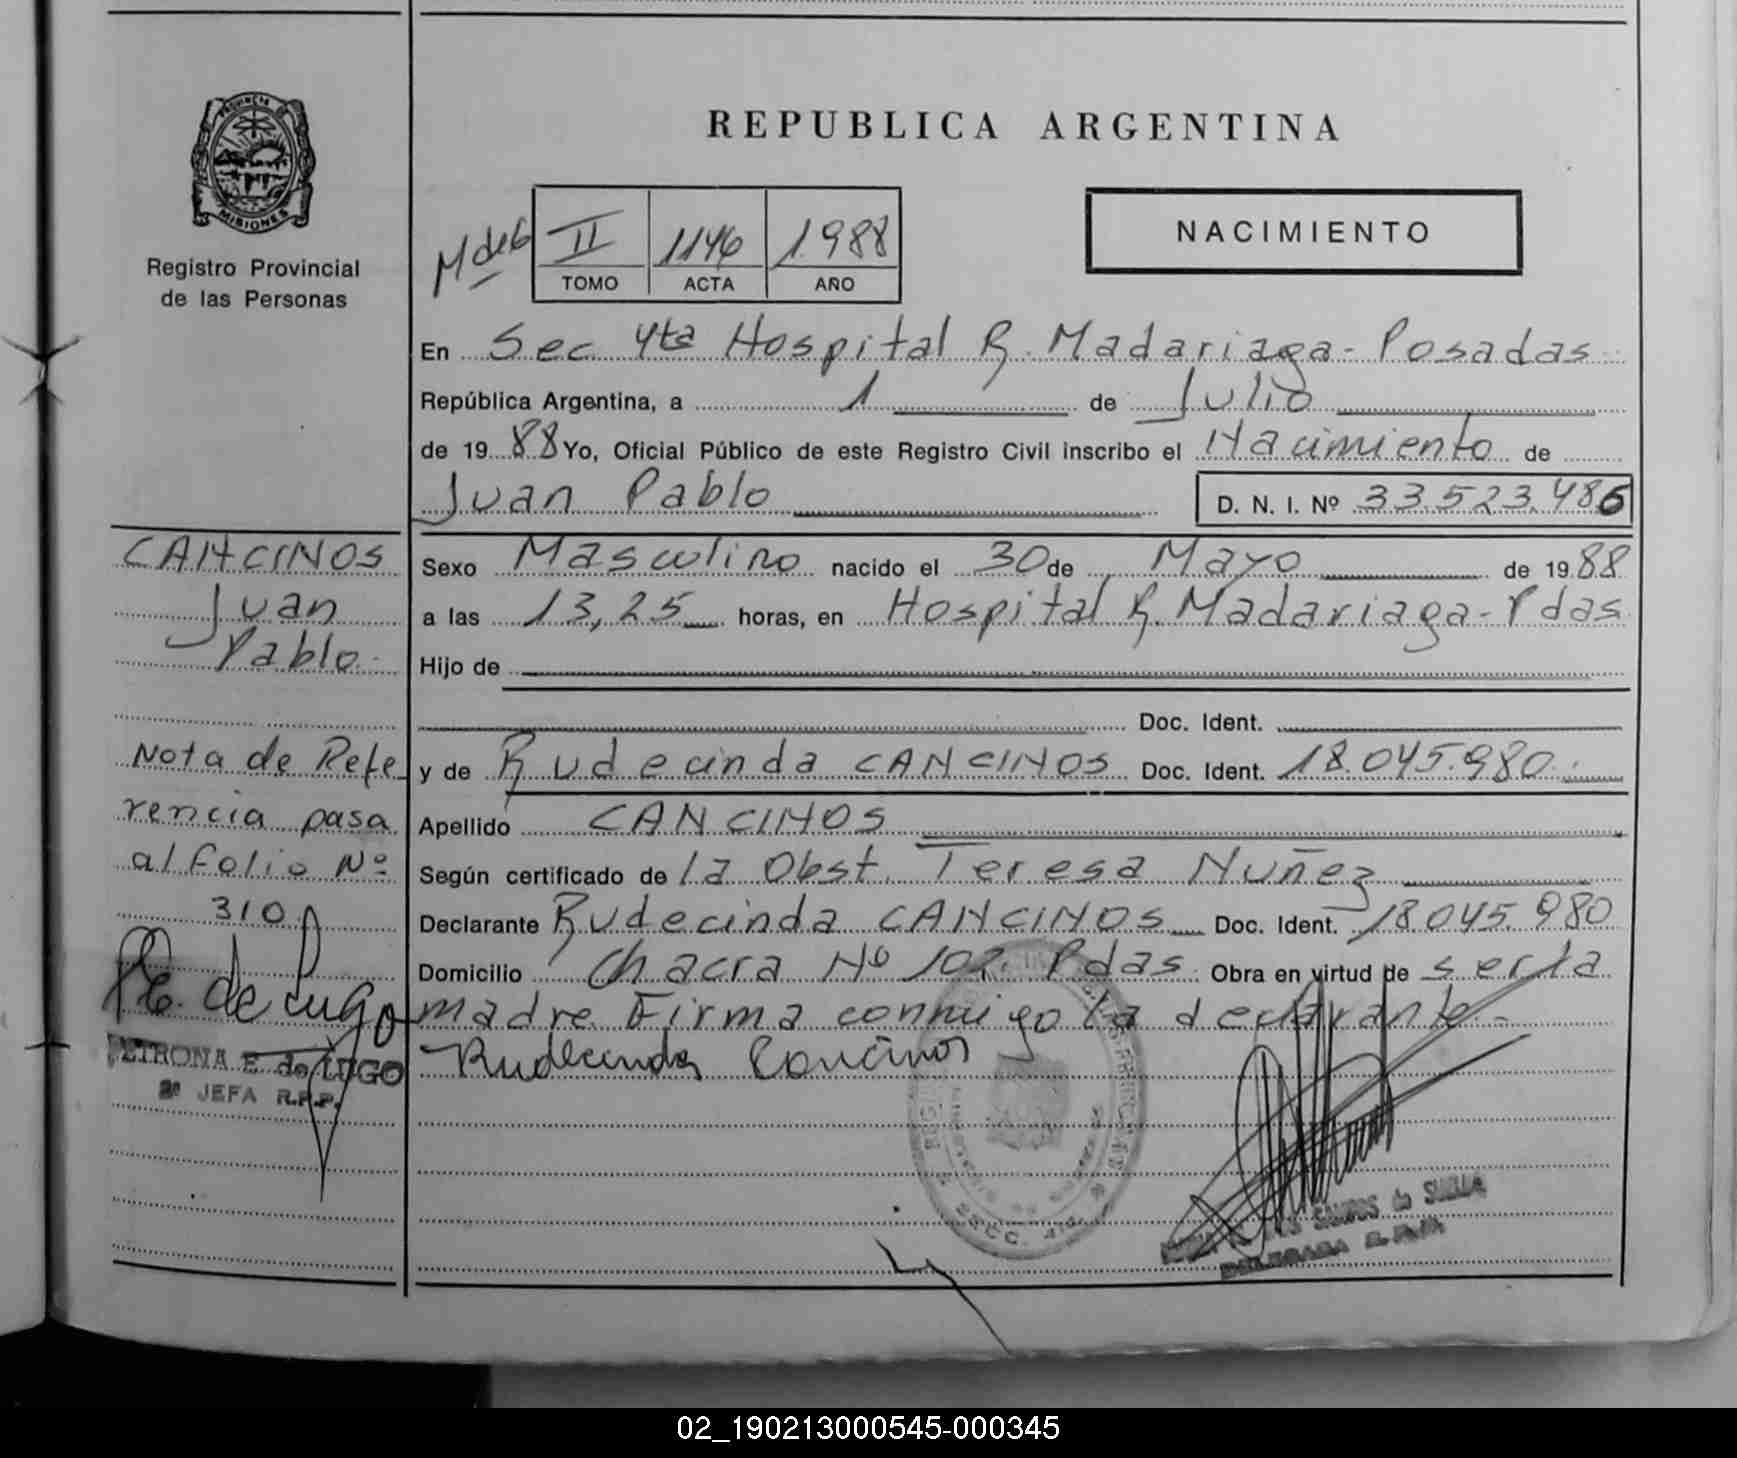 PROVINCIA DE
MISIONES
Registro Provincial
de las Personas
REPUBLICA ARGENTINA
M de G
II 1146 1988
TOMO ACTA AÑO
NACIMIENTO
En Sec 4ta Hospital R. Madariaga - Posadas
República Argentina, a 1 de Julio
de 19 88 Yo, Oficial Público de este Registro Civil inscribo el Nacimiento de
Juan Pablo D. N. I. Nº 33.523.486
CANCINOS
Juan
Pablo.
Sexo Masculino nacido el 30 de Mayo de 19 88
a las 13,25 horas, en Hospital R. Madariaga - Pdas
Hijo de
Doc. Ident.
y de Rudecinda CANCINOS Doc. Ident. 18.045.980.
Apellido CANCINOS
Según certificado de la Obst. Teresa Nuñez
Declarante Rudecinda CANCINOS Doc. Ident. 18.045.980
Domicilio Chacra Nº 102. Pdas. Obra en virtud de ser la
madre. Firma conmigo la declarante.
Rudecinda Cancinos
Nota de Refe
rencia pasa
al folio Nº
310
de Lugo
PETRONA E de LUGO
2ª JEFA R.P.P.
SECC. 4ta.
SANTOS de
DELEGADA R.P.P.
02_190213000545-000345